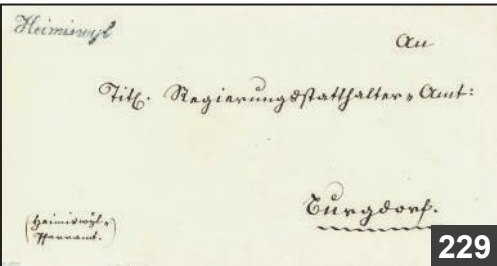 Heimiswyl
An
Titl. Regierungsstatthalter-Amt:
Burgdorf.
(Heimiswyl-
Pfarramt.)
229